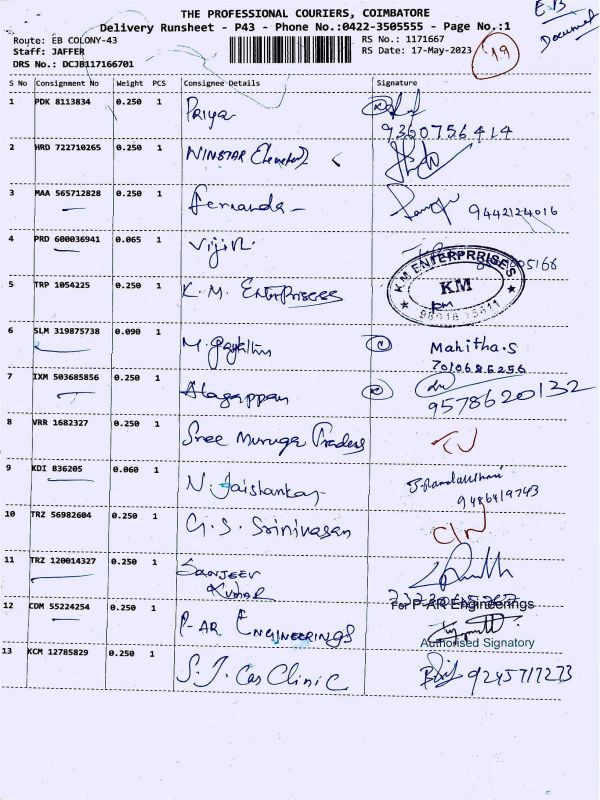 THE PROFESSIONAL COURIERS, COIMBATORE
Delivery Runsheet - P43 - Phone No.:0422-3505555 - Page No.:1
E.B
Document
Route: EB COLONY-43
RS No.: 1171667
Staff: JAFFER
RS Date: 17-May-2023
19
DRS No.: DCJB117166701
S No Consignment No Weight PCS Consignee Details Signature
1 PDK 8113834 0.250 1 Priya
9360756414
2 HRD 722710265 0.250 1 WINSTAR
3 MAA 565712828 0.250 1 Fernanda 9442124016
4 PRD 600036941 0.065 1 Viji R.
5 TRP 1054225 0.250 1 K.M. EnterPrisess
K M ENTERPRRISES
KM
6 SLM 319875738 0.090 1 M. Mahitha.S
7010686256
7 IXM 503685856 0.250 1 Alagappan
9578620132
8 VRR 1682327 0.250 1 Sree Muruga Traders
9 KDI 836205 0.060 1 N. Jaishankar
9486419743
10 TRZ 56982604 0.250 1 G.S. Srinivasan
11 TRZ 120014327 0.250 1 SANJEEV
KUMAR
For P-AR Engineerings
12 CDM 55224254 0.250 1 P-AR ENGINEERINGS
Authorised Signatory
13 KCM 12785829 0.250 1 S.J. Clinic 9245717273